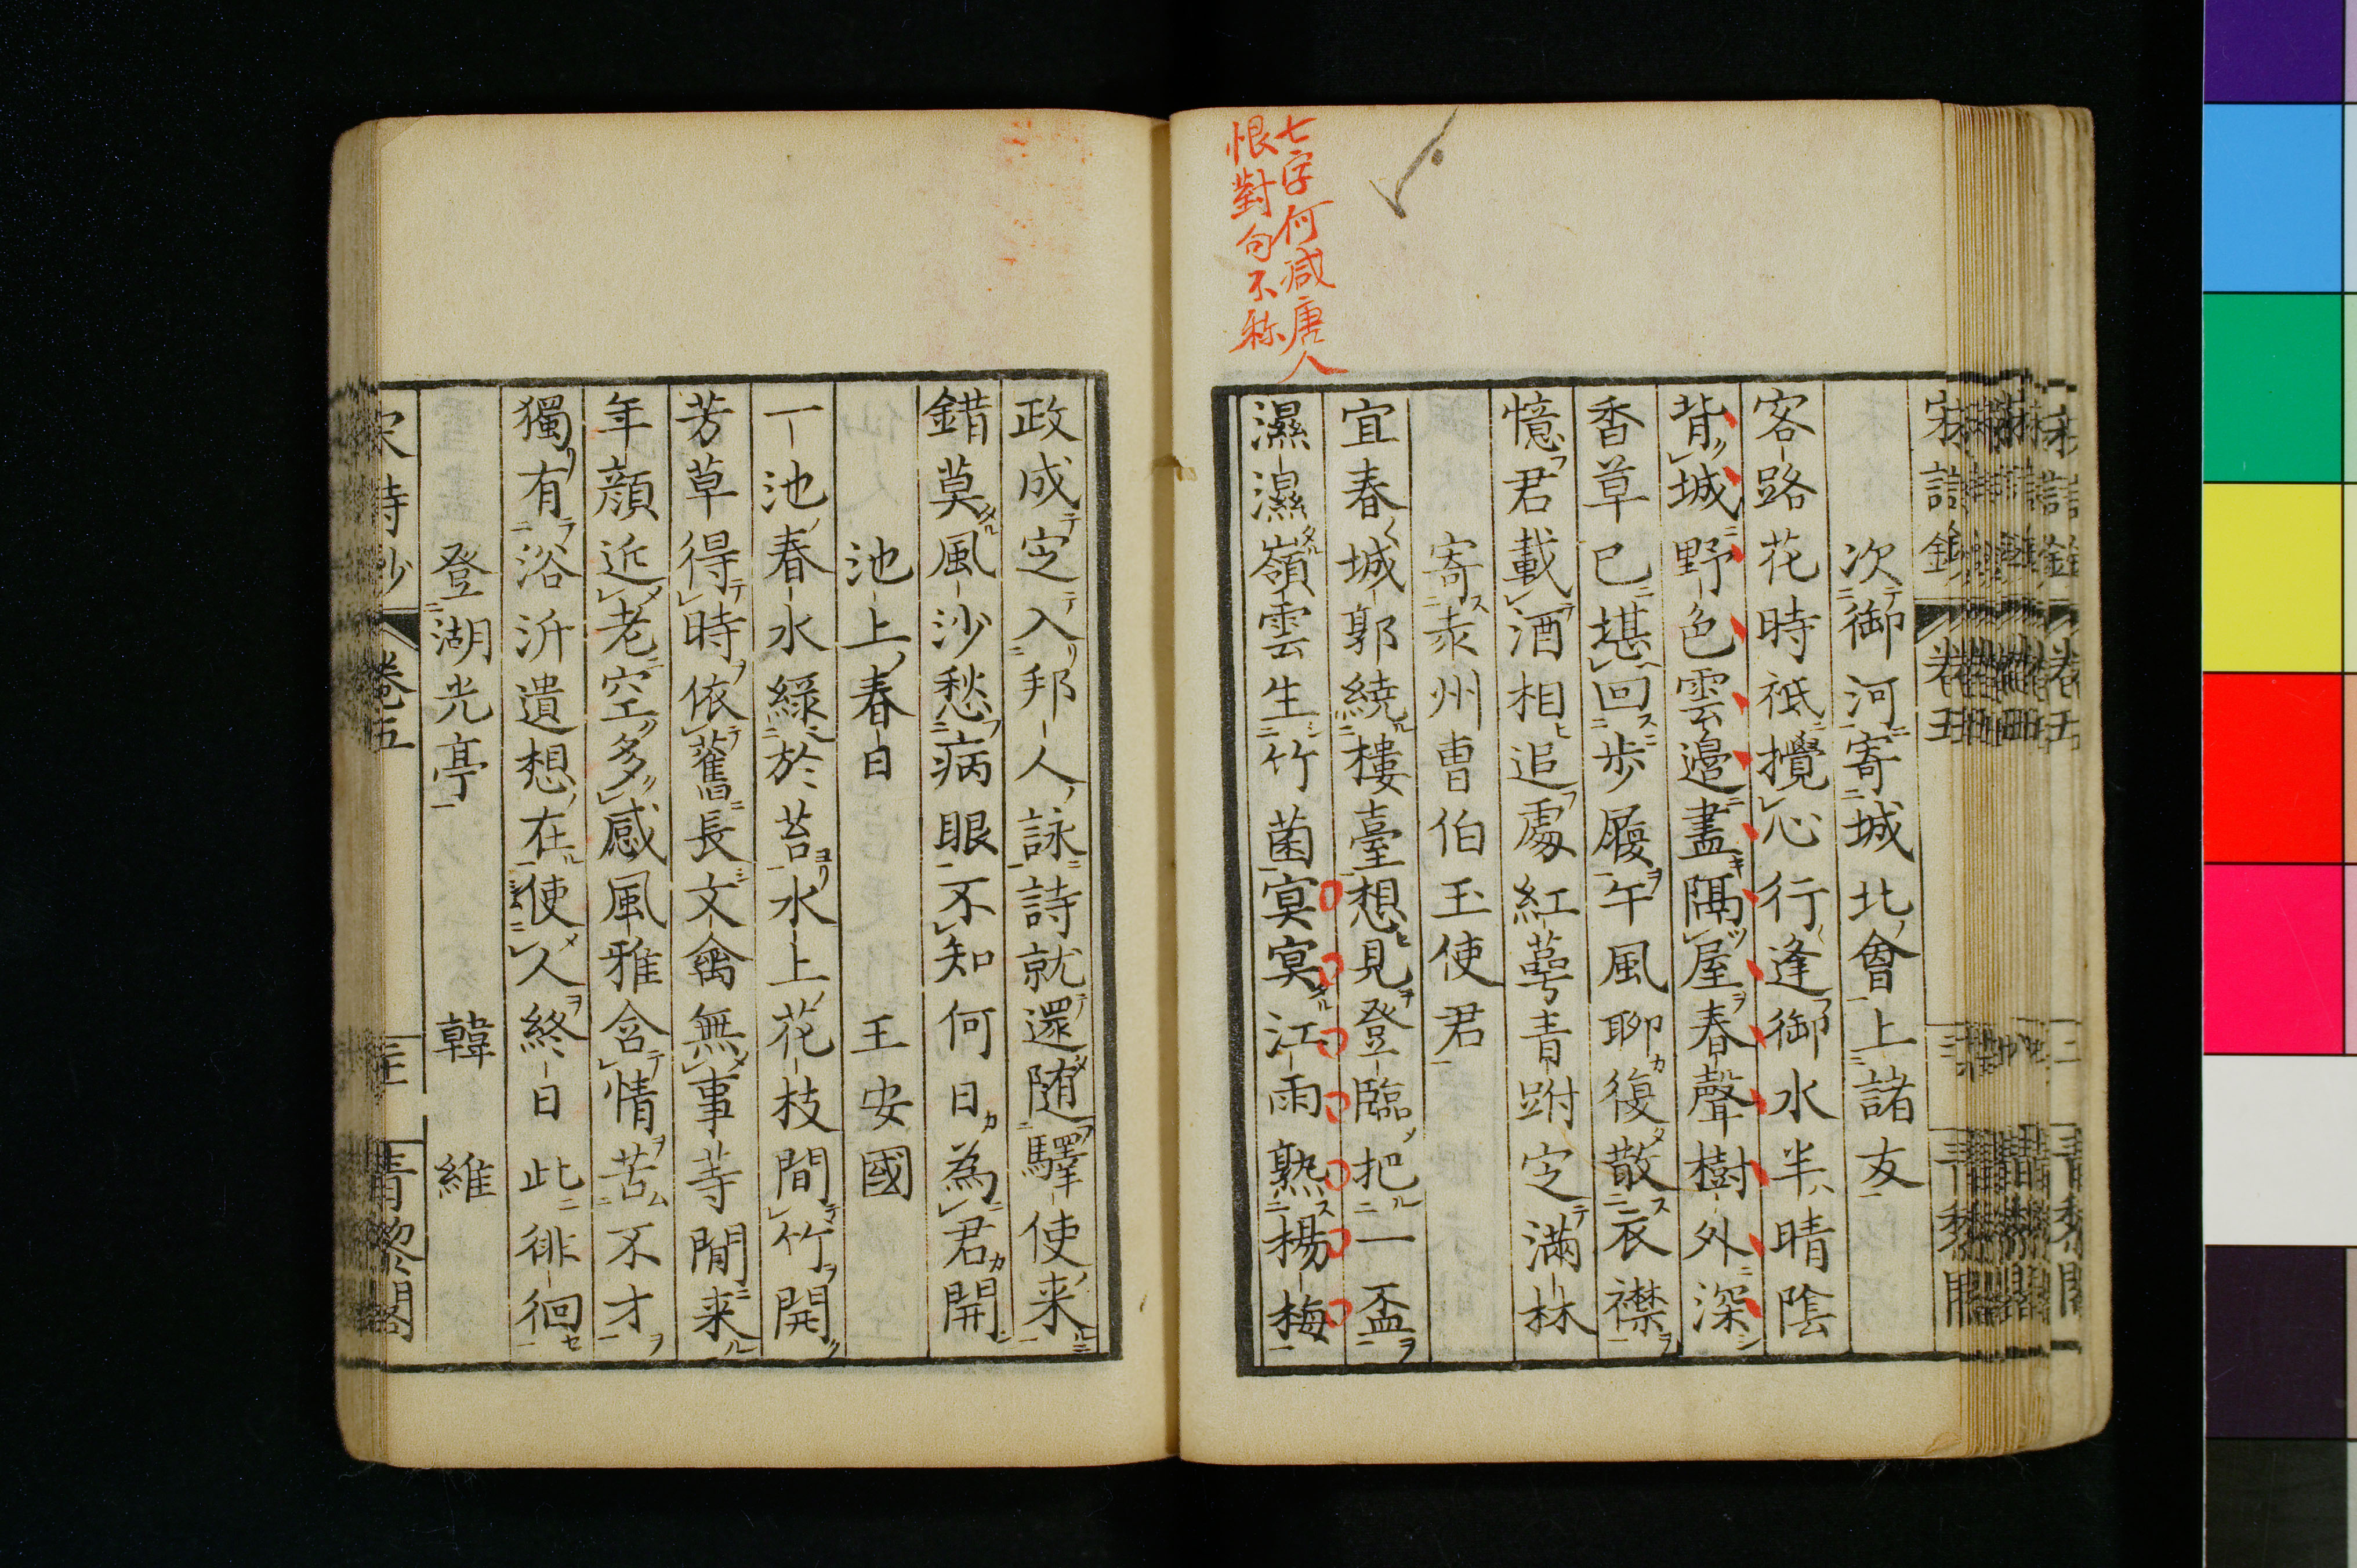 七字何减唐人
恨對句不称
次御河寄城北會上諸友
客路花時祗攪心行逢御水半晴陰
背城野色雲邉盡隔屋春聲樹外深
香草已堪回歩屧午風聊復散衣襟
憶君載酒相追處紅蕚青跗定滿林
寄袁州曹伯玉使君
宜春城郭繞樓臺想見登臨把一盃
濕濕嶺雲生竹菌冥冥江雨熟楊梅
政成定入邦人詠詩就還随驛使来
錯莫風沙愁病眼不知何日為君開
池上春日 王安國
一池春水綠於苔水上花枝間竹開
芳草得時依舊長文禽無事等閒来
年顔近老空多感風雅含情苦不才
獨有浴沂遺想在使人終日此徘徊
登湖光亭 韓維
宋詩鈔 卷五 青黎閣